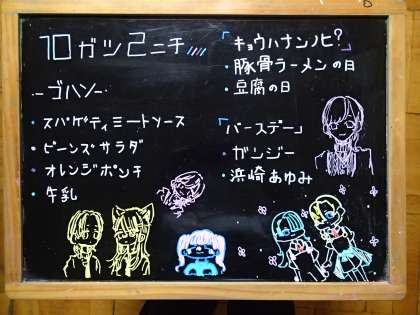 10ガツ2ニチ
-ゴハン-
・スパゲティミートソース
・ビーンズサラダ
・オレンジポンチ
・牛乳
「キョウハナンノヒ?」
・豚骨ラーメンの日
・豆腐の日
「バースデー」
・ガンジー
・浜崎あゆみ